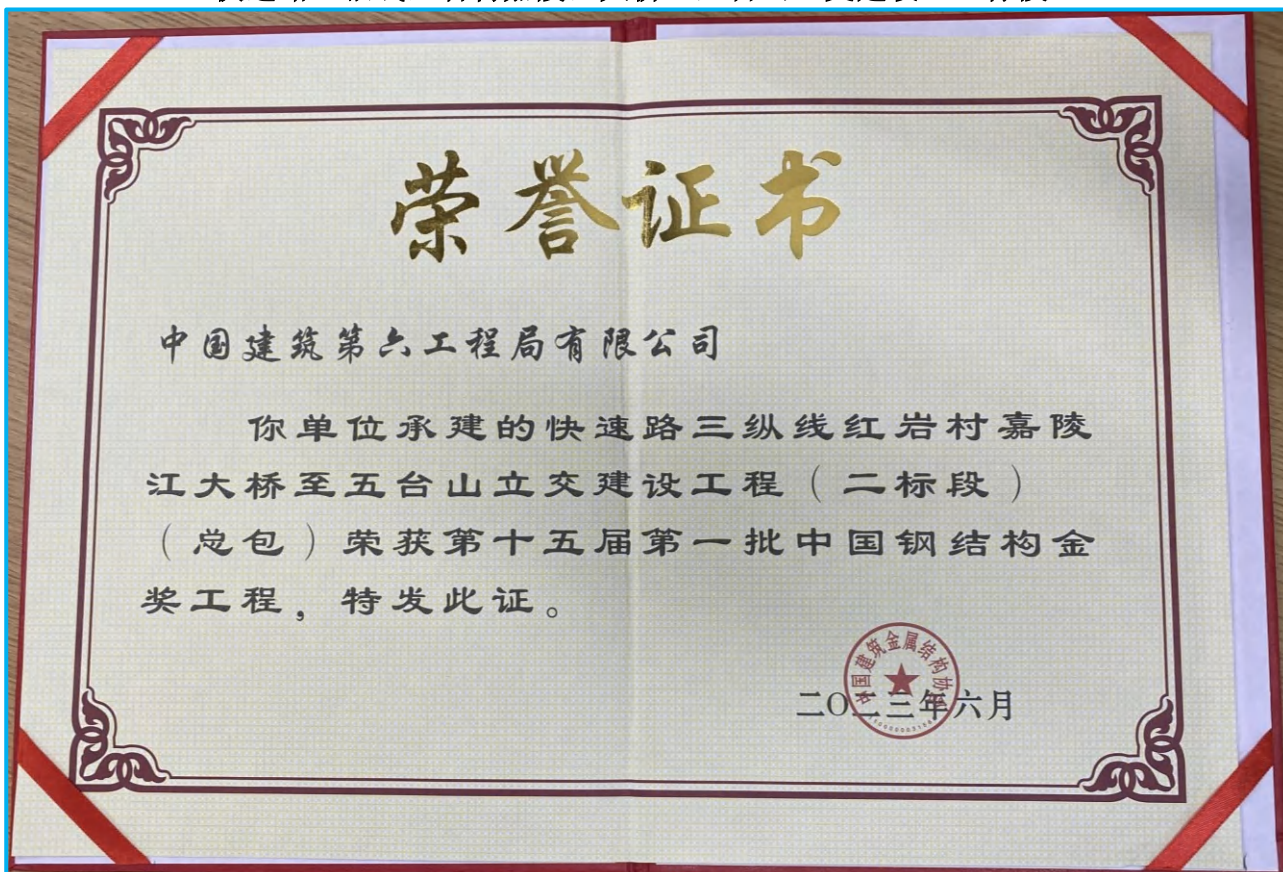 荣誉证书
中国建筑第六工程局有限公司
你单位承建的快速路三纵线红岩村嘉陵
江大桥至五台山立交建设工程（二标段）
（总包）荣获第十五届第一批中国钢结构金
奖工程，特发此证。
中国建筑金属结构协会
二〇二三年六月